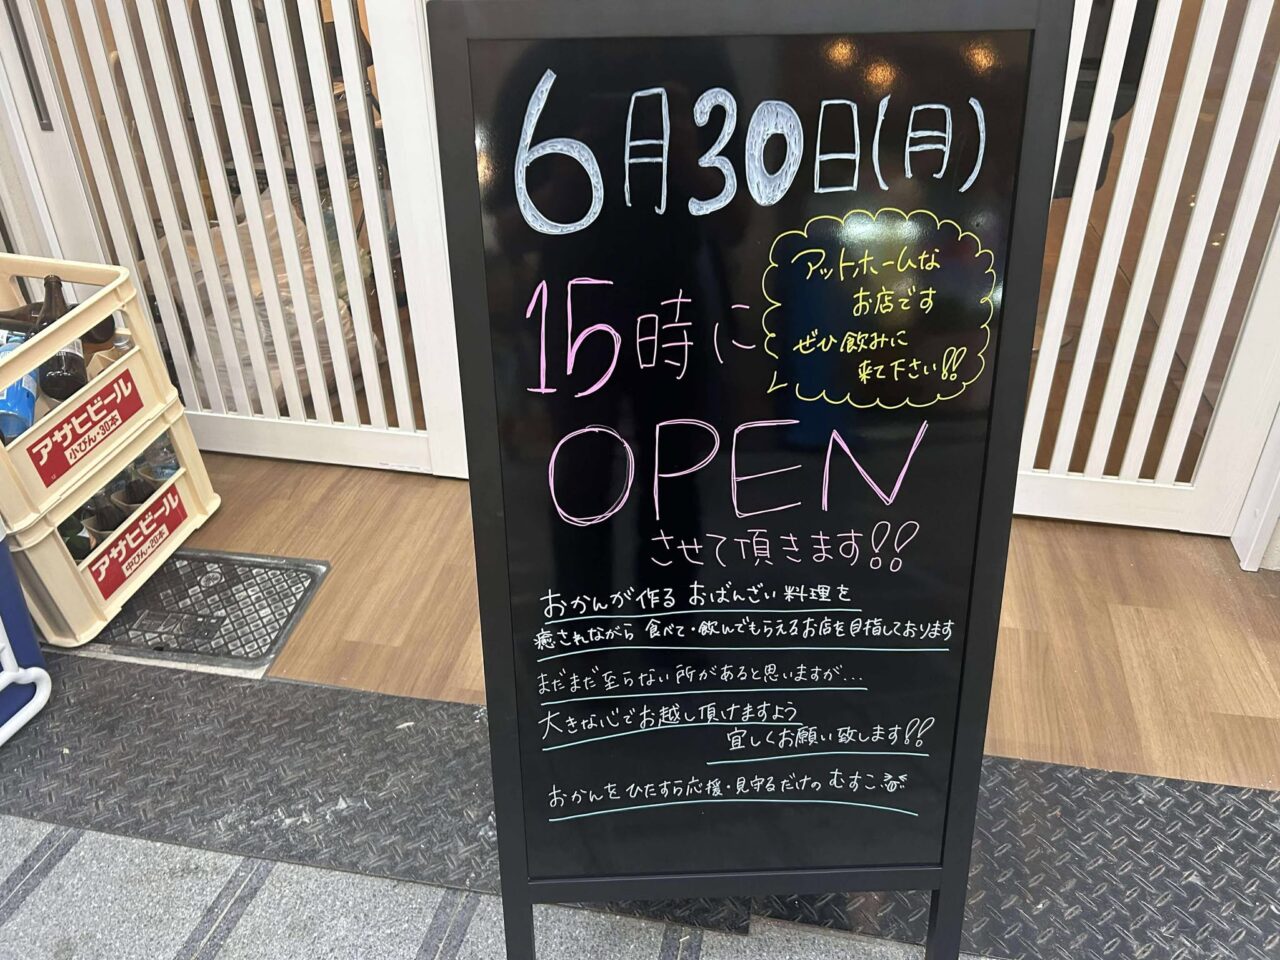 6月30日(月)
15時に
アットホームな
お店です
ぜひ飲みに
来て下さい!!
OPEN
させて頂きます!!
おかんが作る おばんざい料理を
癒されながら 食べて・飲んでもらえるお店を目指しております
まだまだ至らない所があると思いますが...
大きな心でお越し頂けますよう
宜しくお願い致します!!
おかんを ひたすら応援・見守るだけの むすこ
アサヒビール
小びん・30本
アサヒビール
中びん・20本